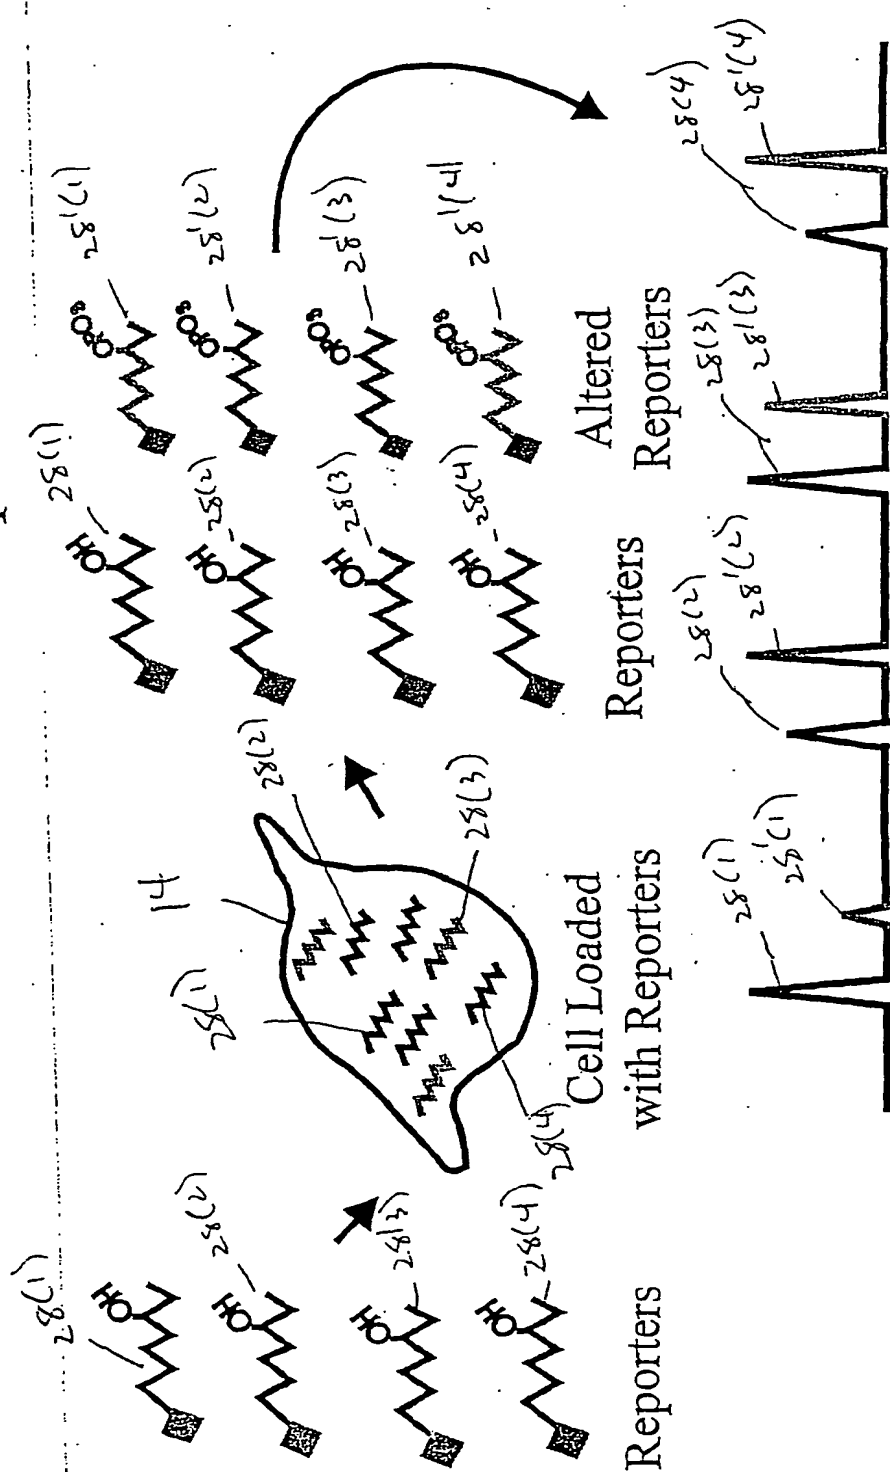 28(1)
HO
28(2)
HO
28(3)
HO
28(4)
HO
Reporters
14
28(1)
28(2)
28(3)
28(4)
Cell Loaded
with Reporters
28(1)
HO
28(2)
HO
28(3)
HO
28(4)
HO
Reporters
28'(1)
28'(2)
28'(3)
28'(4)
Altered
Reporters
28(1)
28'(1)
28(2)
28'(2)
28(3)
28'(3)
28(4)
28'(4)